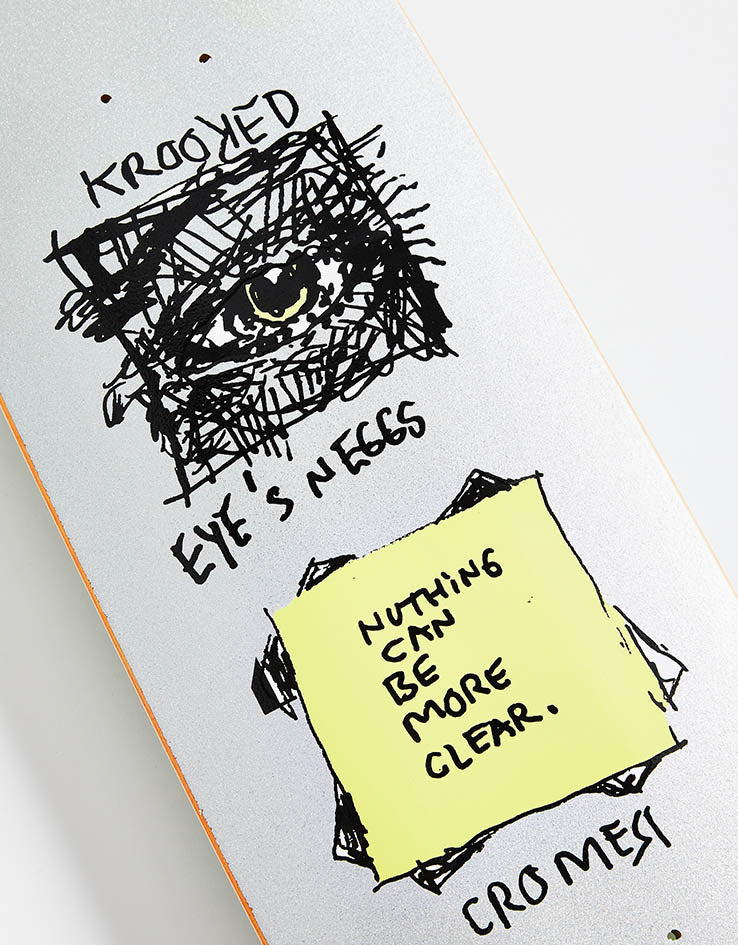 KROOKED
EYE'S NEGGS
NUTHiNG
CAN
BE
MORE
CLEAR.
CROMESI